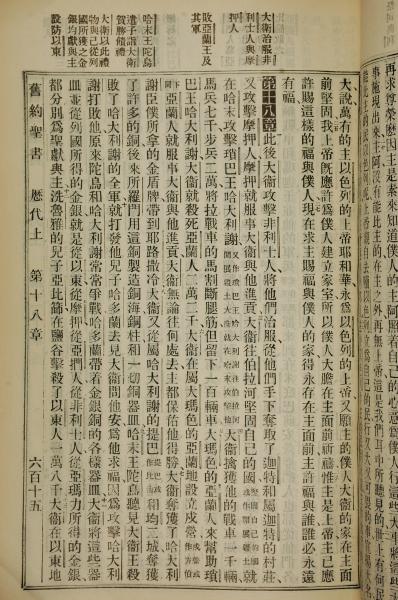 再求尊榮麽因主是素來知道僕人的
大說萬有的主以色列的上帝耶和華永爲以色列的上帝又願主的僕人大衛的家在主面
前堅固我上帝旣應許爲僕人建立家室所以僕人大膽在主面前祈禱惟主是上帝主已應
許賜這樣的福與僕人現在求主賜福與僕人的家得永存在主面前主許福與誰誰必永遠
有福
大衛治服非
利士人與摩
押人
第十八章此後大衛攻擊非利士人將他們治服從他們手下奪取了迦特和屬迦特的村莊
又攻擊摩押摩押就服事大衛與他進貢大衛往伯拉河堅固自己的國就
敗亞蘭王及
其軍
在哈末攻擊瑣巴王哈大利謝大衛擒獲他的戰車一千輛
馬兵七千步兵二萬將拉戰車的馬割斷腿筋但留下一百輛車大瑪色的亞蘭人來幫助瑣
巴王哈大利謝大衛就殺死亞蘭人二萬二千大衛在屬大瑪色的亞蘭地設立戍營
亞蘭人就服事大衛與他進貢大衛無論往何處去主都保佑他得勝大衛奪獲了哈大利
謝臣僕所拿的金盾牌帶到耶路撒冷大衛又從屬哈大利謝的提巴和均二城奪獲
哈末王陀烏
遣子謝大衛
賀勝饋禮
了許多的銅後來所羅門用這銅製造銅海銅柱和一切銅器皿哈末王陀烏聽見大衛王殺
敗了哈大利謝的全軍就打發他兒子哈多蘭去見大衛問他安爲他求福因爲攻擊哈大利
大衛以此禮
物與己從列
國所獲之金
銀均獻與主
設防以東
謝打敗他原來陀烏和哈大利謝常常爭戰哈多蘭帶着金銀銅的各樣器皿大衛將這些器
皿並從列國所得的金銀就是從以東從摩押從亞捫人從非利士人從亞瑪力所得的金銀
都分別爲聖獻與主洗魯雅的兒子亞比篩在鹽谷擊殺了以東人一萬八千大衛在以東地
舊約聖書 歷代上 第十八章 六百十五